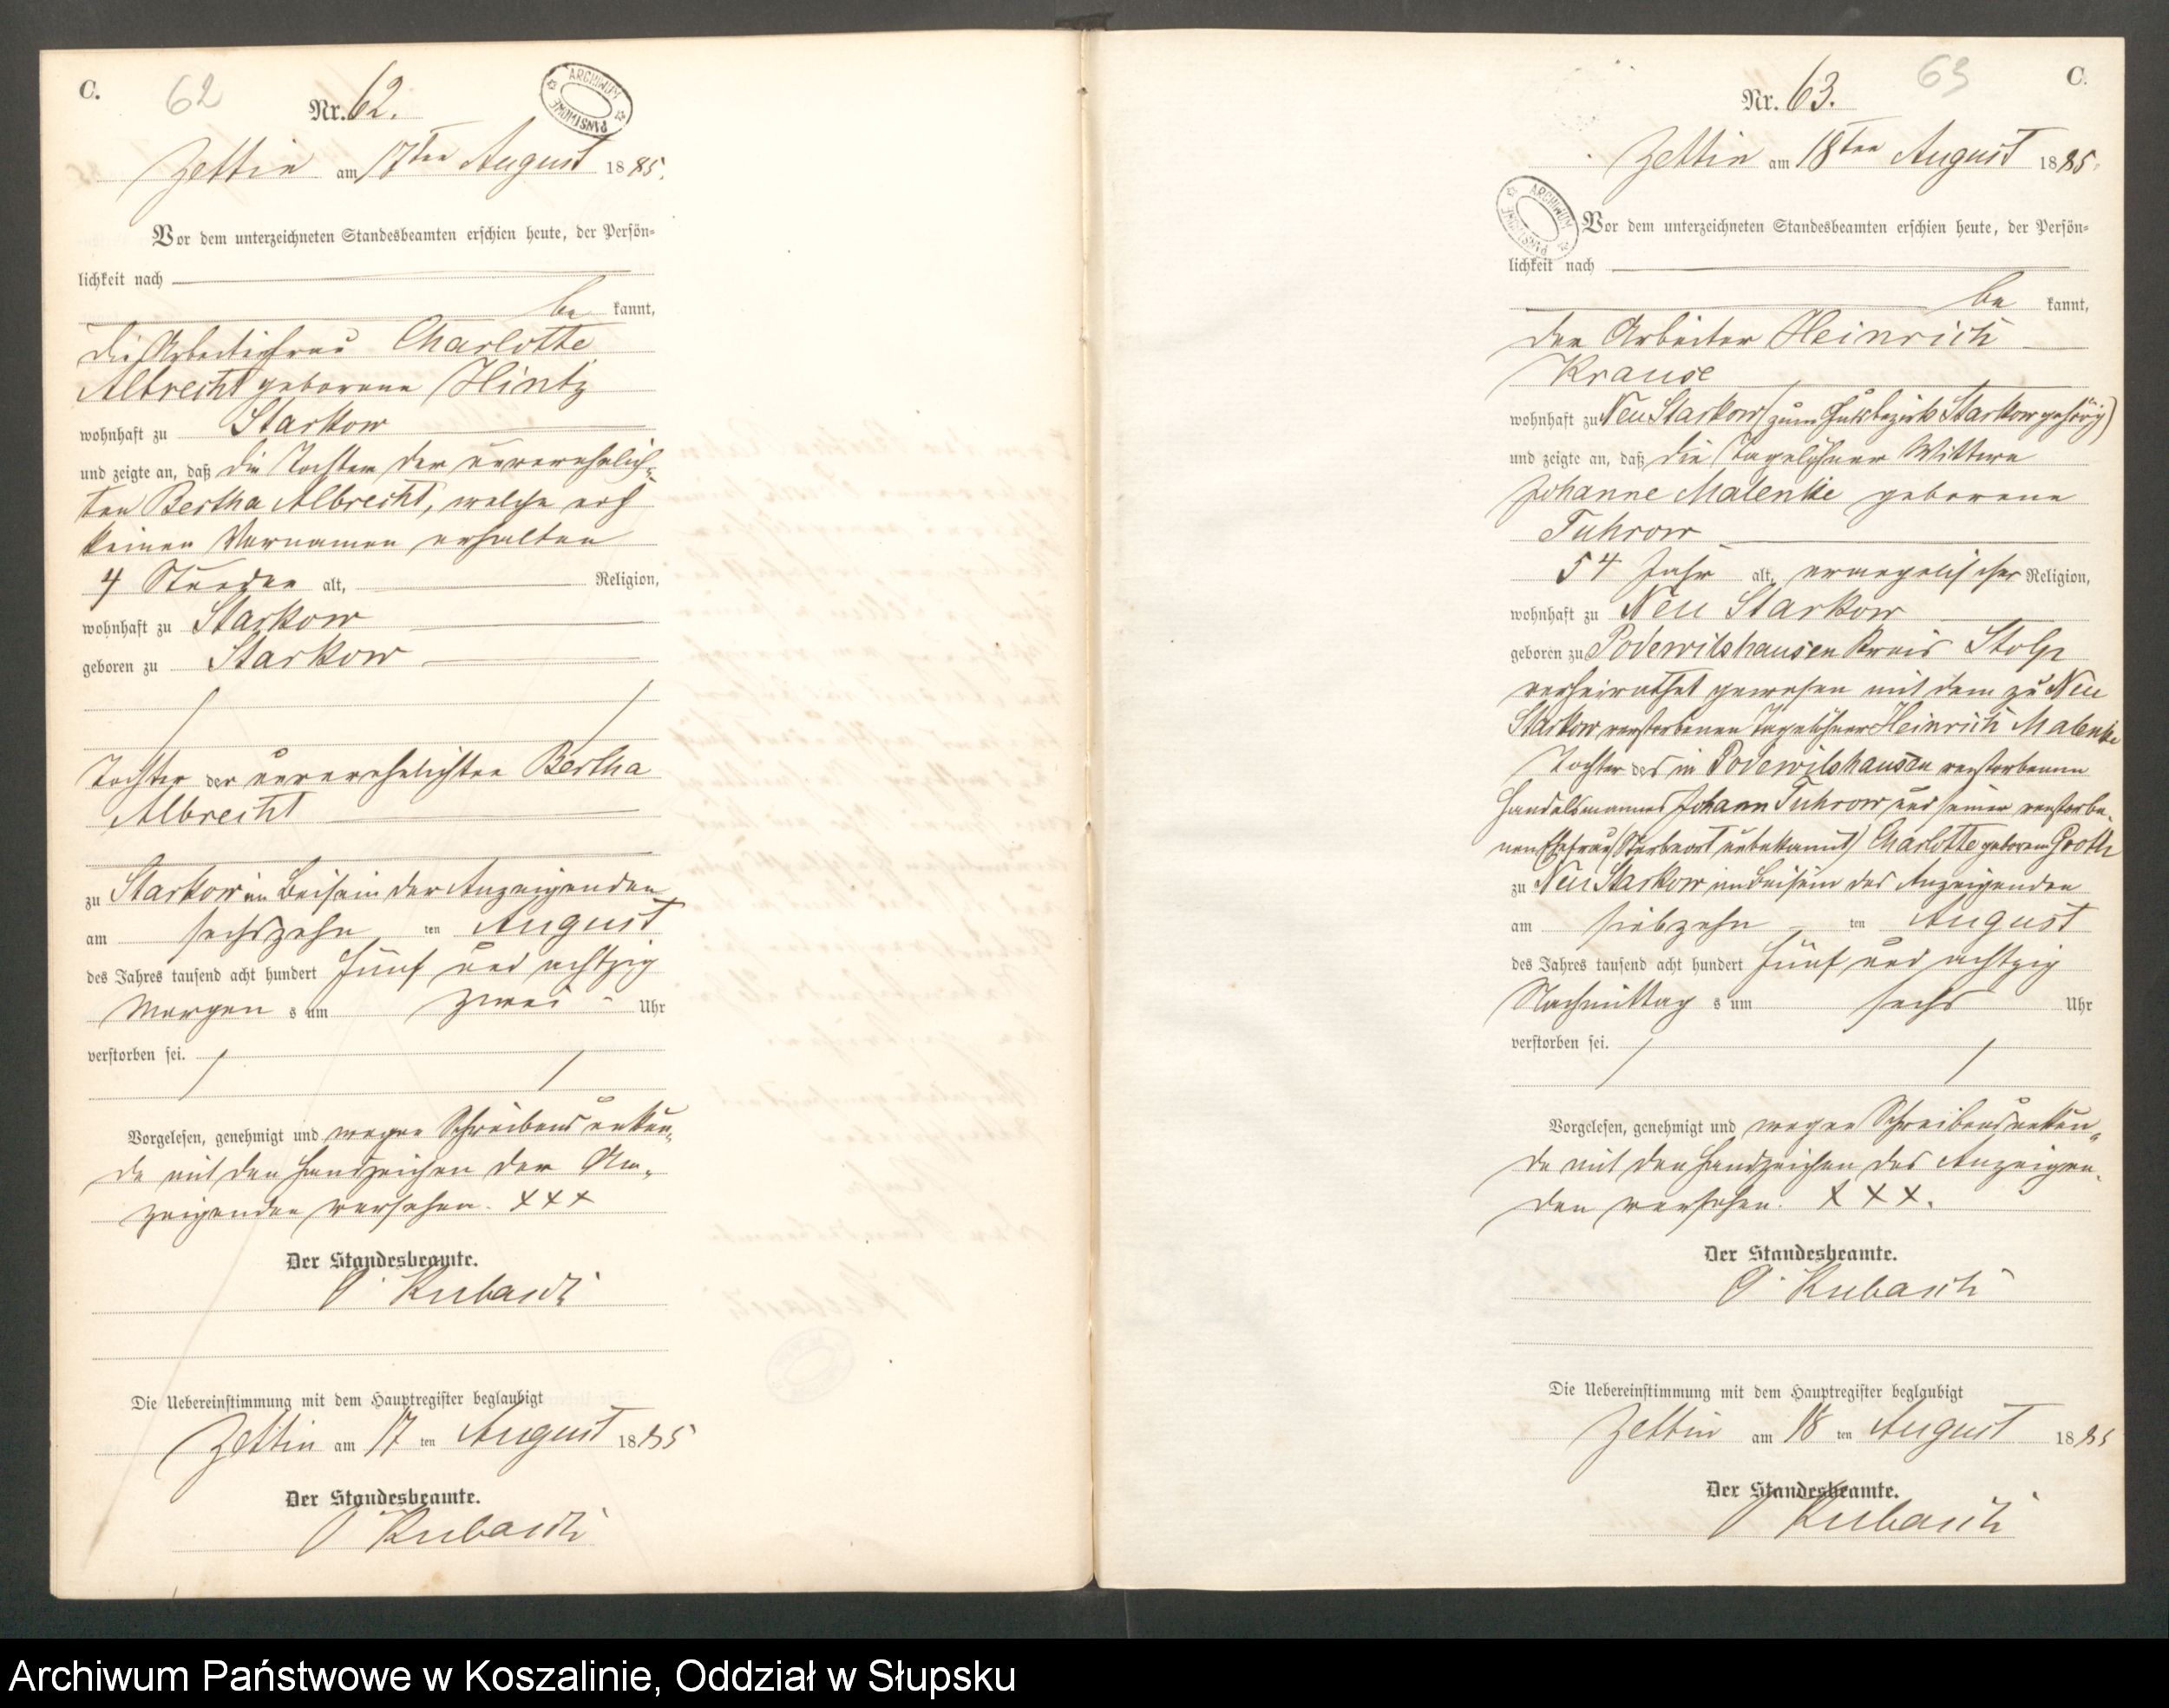 C.
62
Nr. 62.
ARCHIWUM PAŃSTWOWE
Zettin am 17ten August 1885.
Vor dem unterzeichneten Standesbeamten erschien heute, der Persön-
lichkeit nach
be kannt,
die Arbeiterfrau Charlotte
Albrecht geborene Hintz
wohnhaft zu Starkow
und zeigte an, daß die Tochter der unverehelich-
ten Bertha Albrecht, welche noch
keinen Vornamen erhalten
4 Stunden alt, Religion,
wohnhaft zu Starkow
geboren zu Starkow
Tochter der unverehelichten Bertha
Albrecht
zu Starkow im Beisein der Anzeigenden
am sechszehn ten August
des Jahres tausend acht hundert fünf und achtzig
Morgen s um zwei Uhr
verstorben sei.
Vorgelesen, genehmigt und wegen Schreibensunkun-
de mit den Handzeichen der An-
zeigenden versehen. XXX
Der Standesbeamte.
Kubasch
Die Uebereinstimmung mit dem Hauptregister beglaubigt
Zettin am 17 ten August 1885
Der Standesbeamte.
Kubasch
C.
63
Nr. 63.
Zettin am 18ten August 1885.
ARCHIWUM PAŃSTWOWE
Vor dem unterzeichneten Standesbeamten erschien heute, der Persön-
lichkeit nach
be kannt,
der Arbeiter Heinrich
Krause
wohnhaft zu Neu Starkow (zum Gutsbezirk Starkow gehörig)
und zeigte an, daß die Tagelöhner Wittwe
Johanne Malenke geborene
Tuhrow
54 Jahr alt, evangelischer Religion,
wohnhaft zu Neu Starkow
geboren zu Podewilshausen Kreis Stolp
verheirathet gewesen mit dem zu Neu
Starkow verstorbenen Tagelöhner Heinrich Malenke
Tochter des in Podewilshausen verstorbenen
Handelsmannes Johann Tuhrow und seiner verstorbe-
nen Ehefrau (Sterbeort unbekannt) Charlotte geborene Groth
zu Neu Starkow im Beisein des Anzeigenden
am siebzehn ten August
des Jahres tausend acht hundert fünf und achtzig
Nachmittag s um sechs Uhr
verstorben sei.
Vorgelesen, genehmigt und wegen Schreibensunkun-
de mit den Handzeichen des Anzeigen-
den versehen. XXX.
Der Standesbeamte.
Kubasch
Die Uebereinstimmung mit dem Hauptregister beglaubigt
Zettin am 18 ten August 1885
Der Standesbeamte.
Kubasch
Archiwum Państwowe w Koszalinie, Oddział w Słupsku